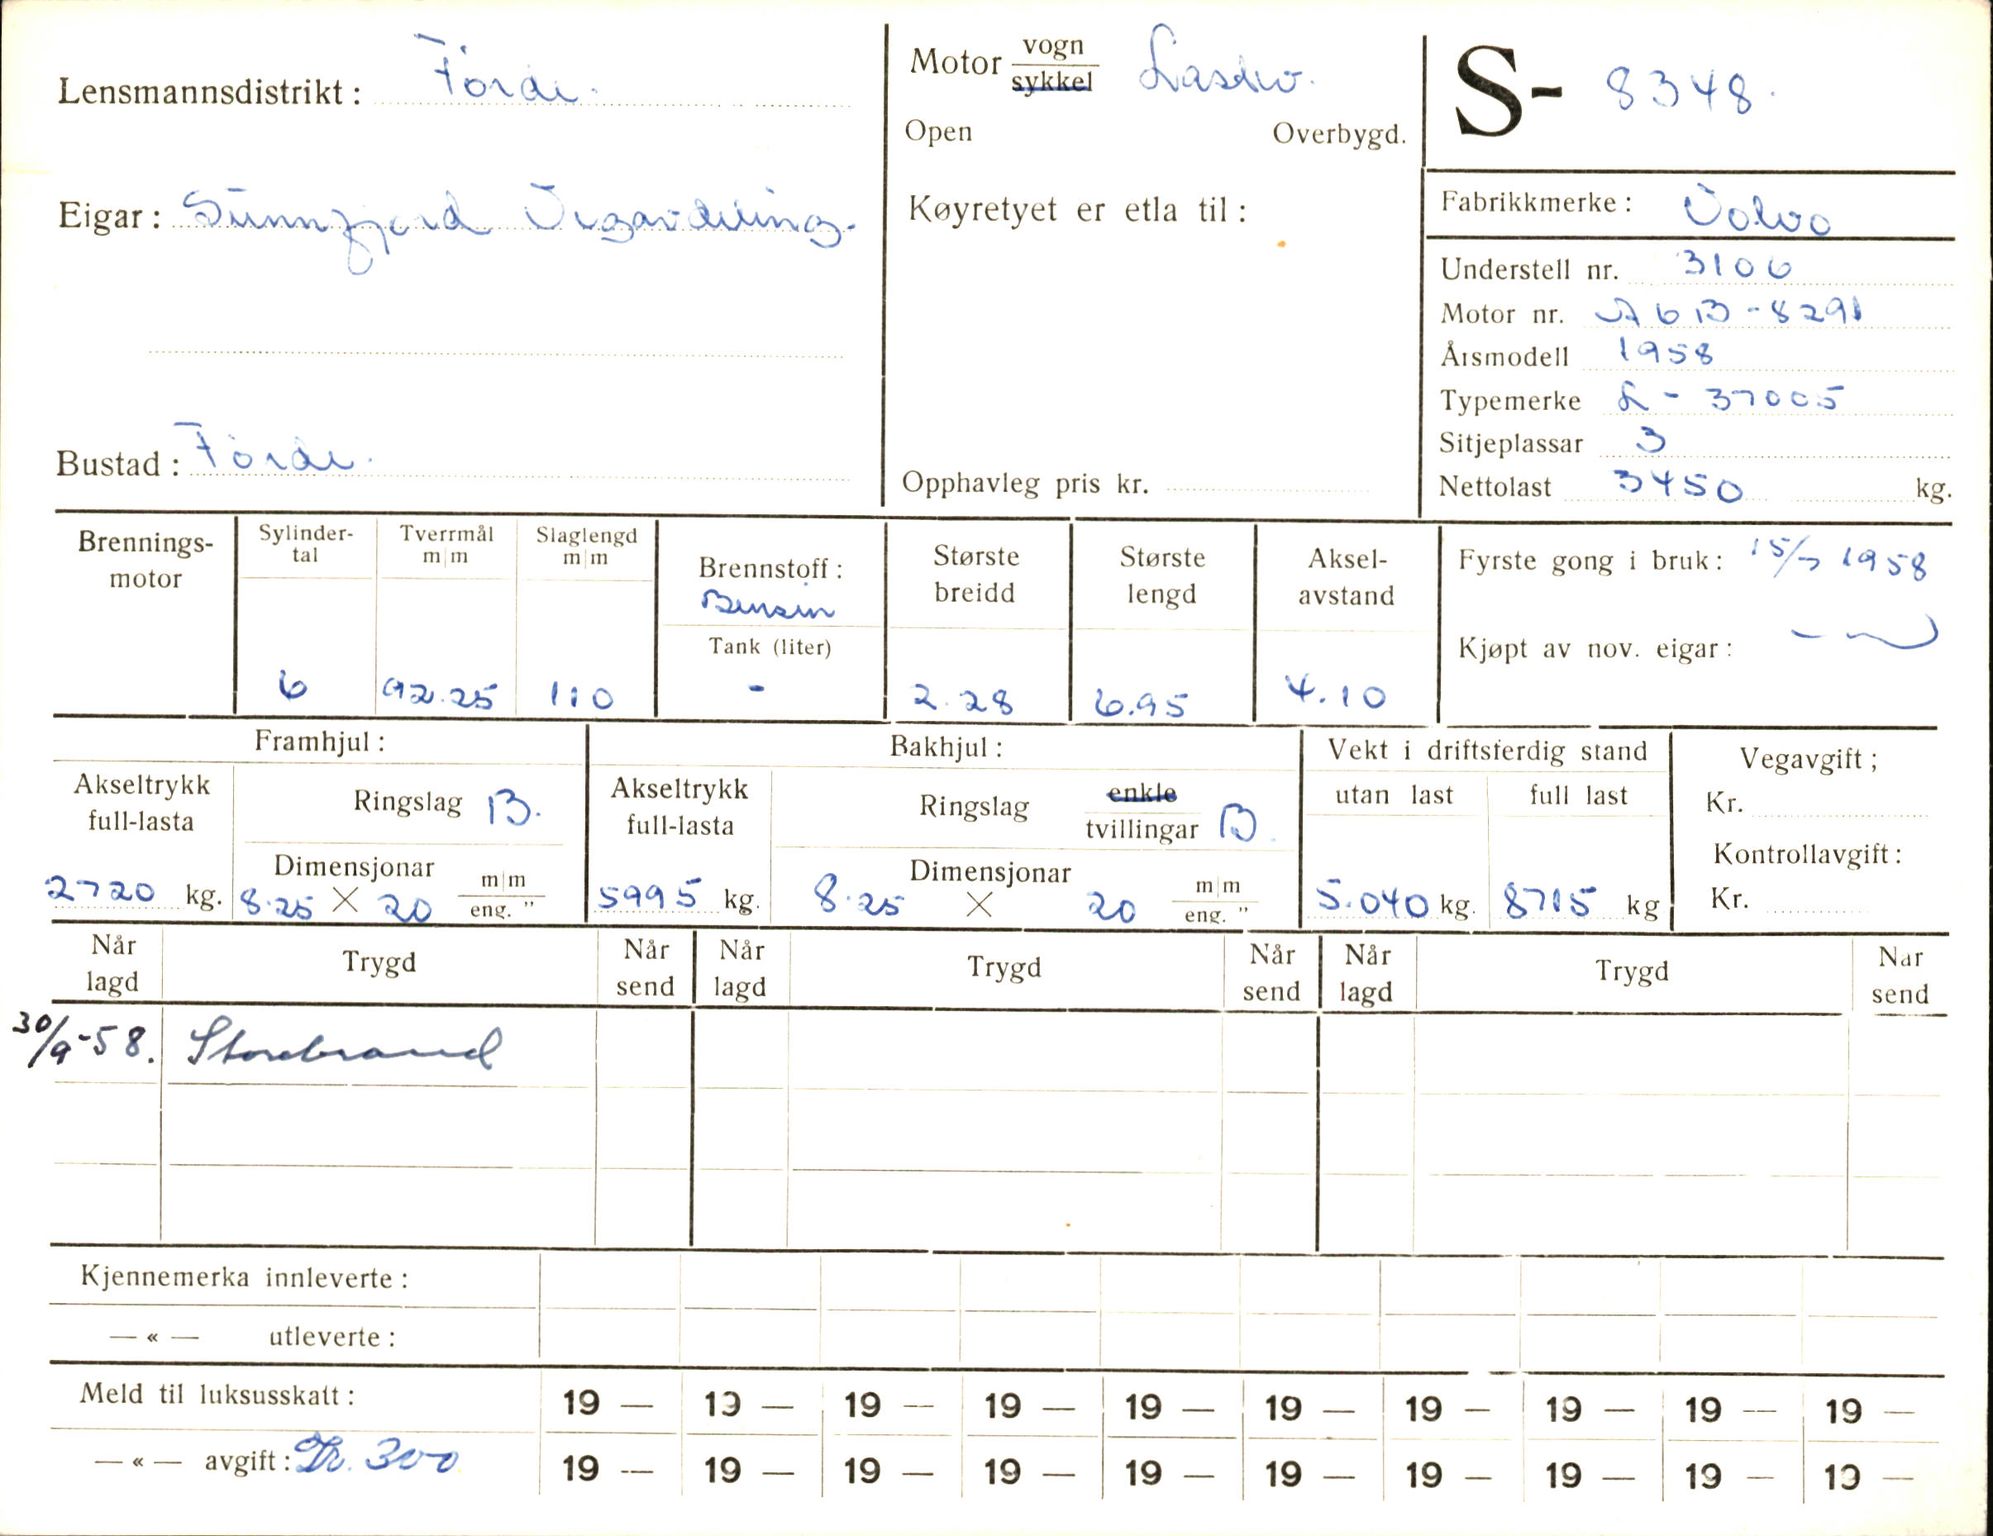 Lensmannsdistrikt: Førde.
Eigar: Sunnfjord Vegavdeling.
Bustad: Førde.
Motor vogn
sykkel Lastev.
Open Overbygd.
Køyretyet er etla til:
Opphavleg pris kr.
S- 8348.
Fabrikkmerke: Volvo
Understell nr. 3106
Motor nr. A6B-8291
Årsmodell 1958
Typemerke L-37005
Sitjeplassar 3
Nettolast 3450 kg.
Brennings-
motor
Sylinder-
tal
6
Tverrmål
m|m
92.25
Slaglengd
m|m
110
Brennstoff:
Bensin
Tank (liter)
-
Største
breidd
2.28
Største
lengd
6.95
Aksel-
avstand
4.10
Fyrste gong i bruk: 15/7 1958
Kjøpt av nov. eigar:
Framhjul:
Akseltrykk
full-lasta
2720 kg.
Ringslag B.
Dimensjonar
8.25 X 20 m|m
eng. "
Bakhjul:
Akseltrykk
full-lasta
5995 kg.
Ringslag enkle
tvillingar B.
Dimensjonar
8.25 X 20 m|m
eng. "
Vekt i driftsferdig stand
utan last
5.040 kg.
full last
8715 kg
Vegavgift;
Kr.
Kontrollavgift:
Kr.
Når
lagd
Trygd
Når
send
Når
lagd
Trygd
Når
send
Når
lagd
Trygd
Når
send
30/9-58. Storebrand
Kjennemerka innleverte:
— « — utleverte:
Meld til luksusskatt: 19 — 19 — 19 — 19 — 19 — 19 — 19 — 19 — 19 — 19 —
— « — avgift: Kr. 300 19 — 19 — 19 — 19 — 19 — 19 — 19 — 19 — 19 — 19 —